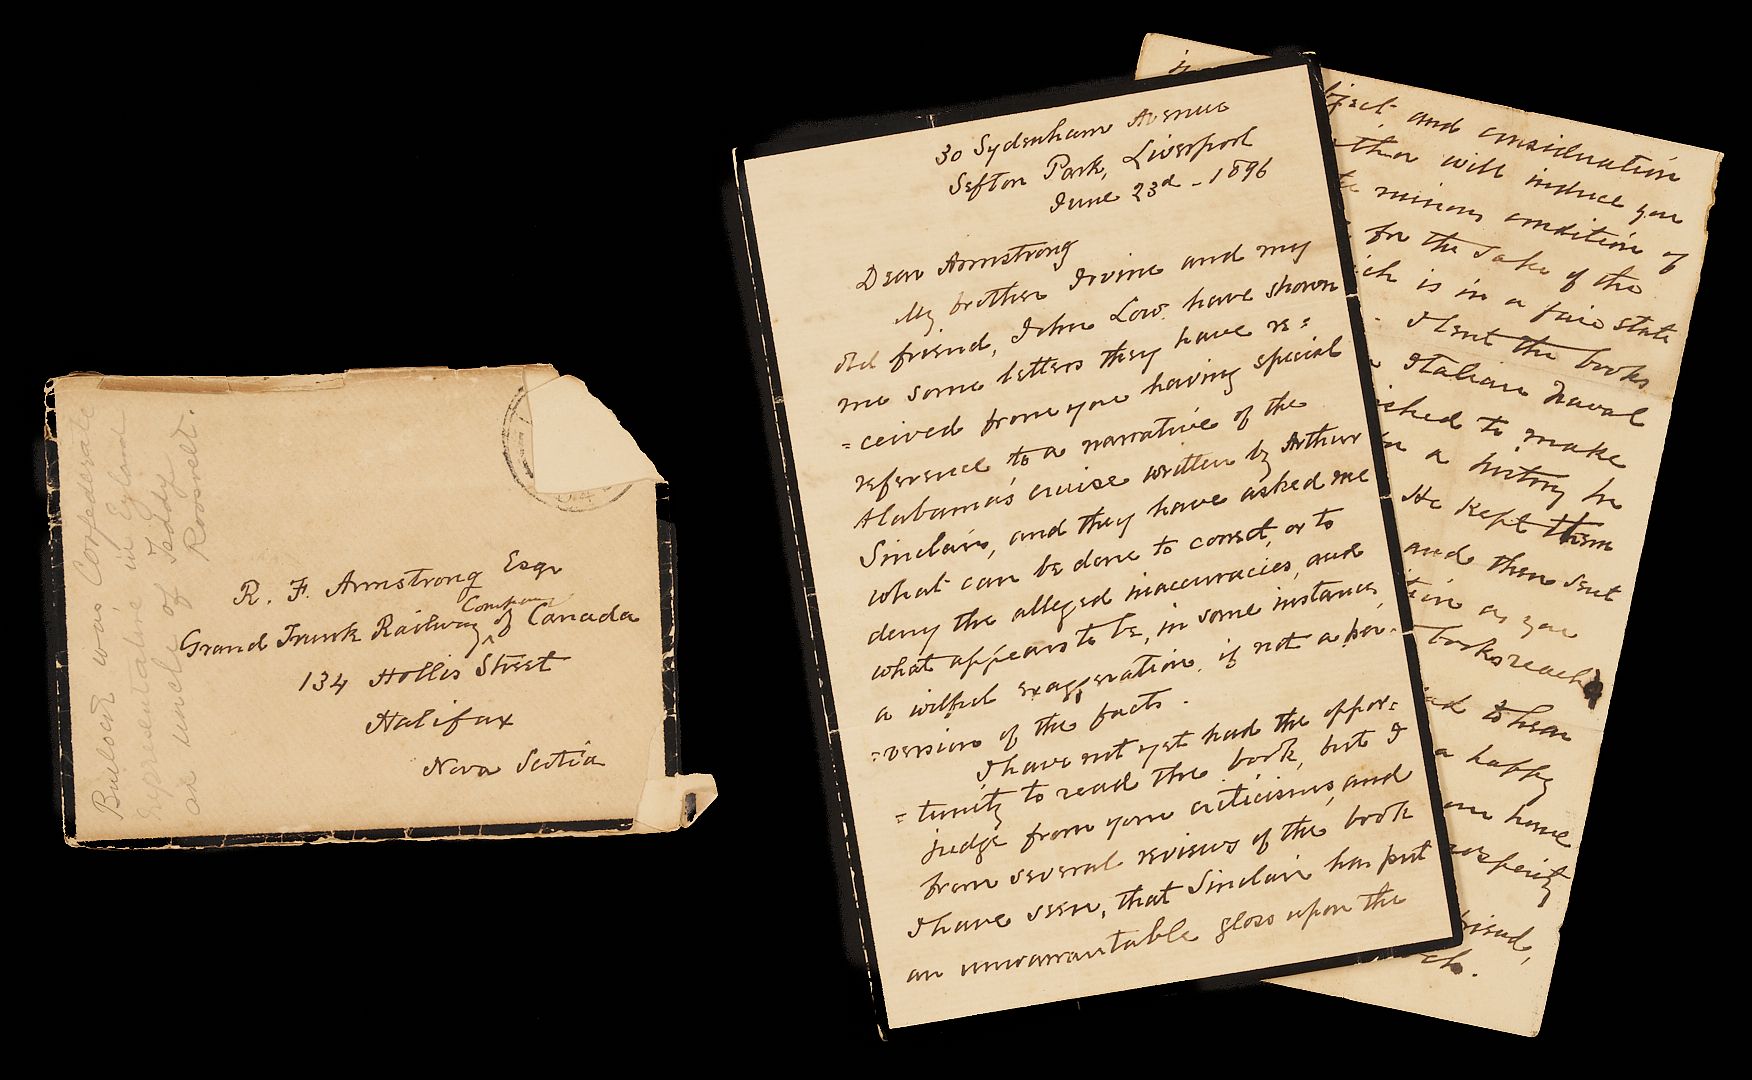 Bullock was Confederate
representative in England
an uncle of Teddy
Roosevelt.
R. F. Armstrong Esqr
Company
Grand Trunk Railway of Canada
134 Hollis Street
Halifax
Nova Scotia
30 Sydenham Avenue
Sefton Park, Liverpool
June 23d - 1896
Dear Armstrong
My brother Irvine and my
old friend, John Low have shown
me some letters they have re=
=ceived from you having special
reference to a narrative of the
Alabama's cruise written by Arthur
Sinclair, and they have asked me
what can be done to correct, or to
deny the alleged inaccuracies, and
what appears to be, in some instances,
a wilful exaggeration, if not a per-
=version of the facts.
I have not yet had the oppor=
=tunity to read the book, but I
judge from your criticisms, and
from several reviews of the book
I have seen, that Sinclair has put
an unwarrantable gloss upon the
and consideration
will induce you
condition of
for the sake of the
is in a fair state
I sent the books
Italian Naval
to make
a history he
He kept them
and then sent
as you
books reach
to hear
a happy
home
friend,